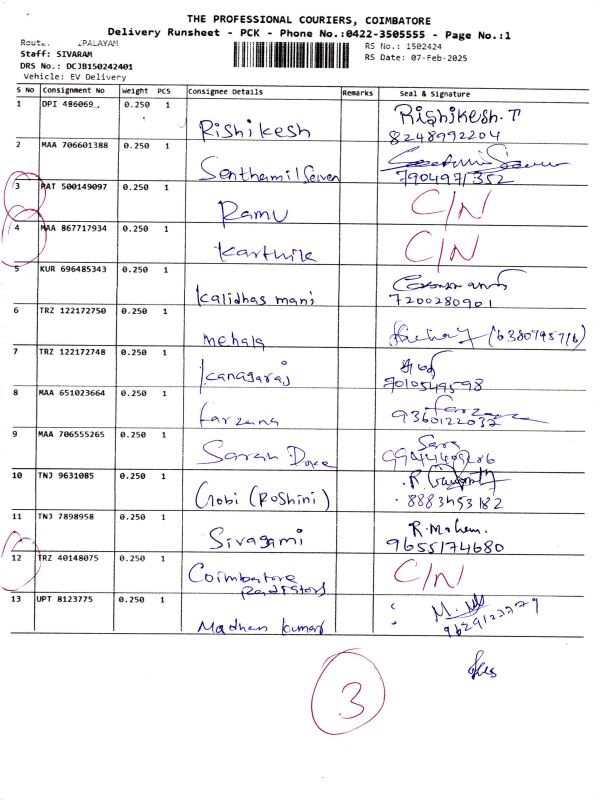 THE PROFESSIONAL COURIERS, COIMBATORE
Delivery Runsheet - PCK - Phone No.:0422-3505555 - Page No.:1
Route: PALAYAM
Staff: SIVARAM
DRS No.: DCJB150242401
Vehicle: EV Delivery
RS No.: 1502424
RS Date: 07-Feb-2025
S No Consignment No Weight PCS Consignee Details Remarks Seal & Signature
1 DPI 486069 0.250 1 Rishikesh Rishikesh.T
8248992204
2 MAA 706601388 0.250 1 Senthamil Selvan
7904971352
3 PAT 500149097 0.250 1 Ramu C/N
4 MAA 867717934 0.250 1 Karthik C/N
5 KUR 696485343 0.250 1 Kalidhas mani
7200280901
6 TRZ 122172750 0.250 1 mehala (6380795716)
7 TRZ 122172748 0.250 1 Kanagaraj
7010549598
8 MAA 651023664 0.250 1 Farzana Farzana
9360122032
9 MAA 706555265 0.250 1 Saran Sara
10 TNJ 9631085 0.250 1 Gobi (Roshini)
8883453182
11 TNJ 7898958 0.250 1 Sivagami R. Mohan.
9655174680
12 TRZ 40148075 0.250 1 Coimbatore Radiators C/N
13 UPT 8123775 0.250 1 Madhan kumar
3